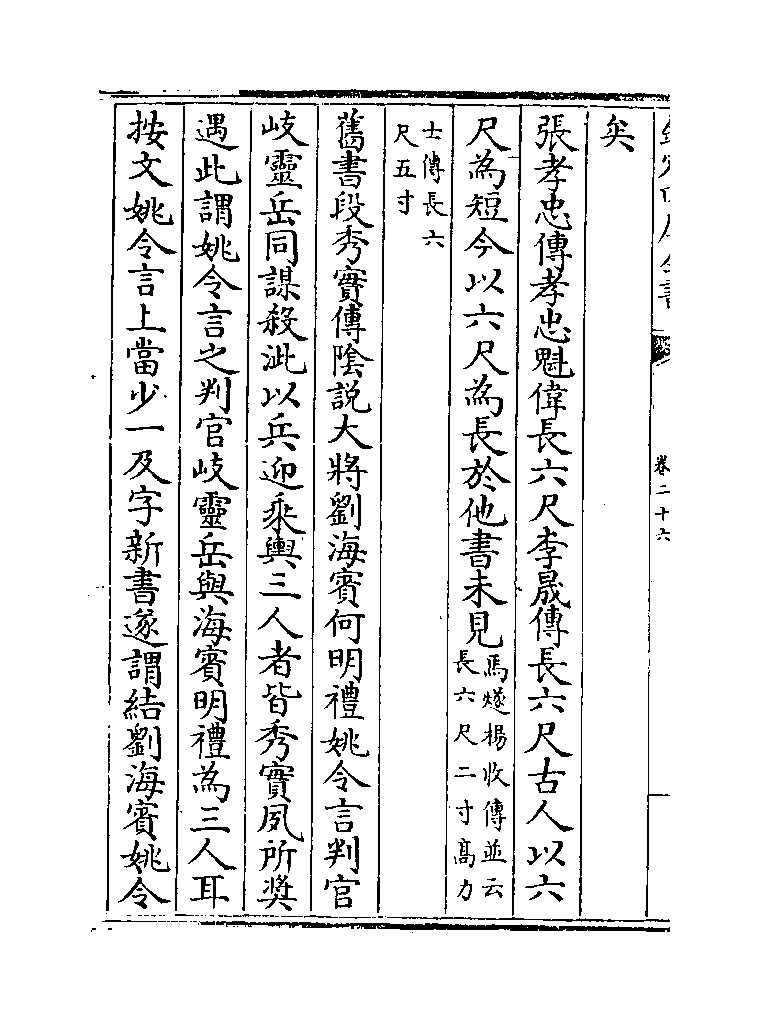 欽定四庫全書
卷二十六
矣
張孝忠傳孝忠魁偉長六尺李晟傳長六尺古人以六
尺為短今以六尺為長於他書未見馬燧楊收傳並云長六尺二寸高力
士傳長六尺五寸
舊書段秀實傳陰說大將劉海賓何明禮姚令言判官
岐靈岳同謀殺泚以兵迎乘輿三人者皆秀實夙所奬
遇此謂姚令言之判官岐靈岳與海賓明禮為三人耳
按文姚令言上當少一及字新書遂謂結劉海賓姚令